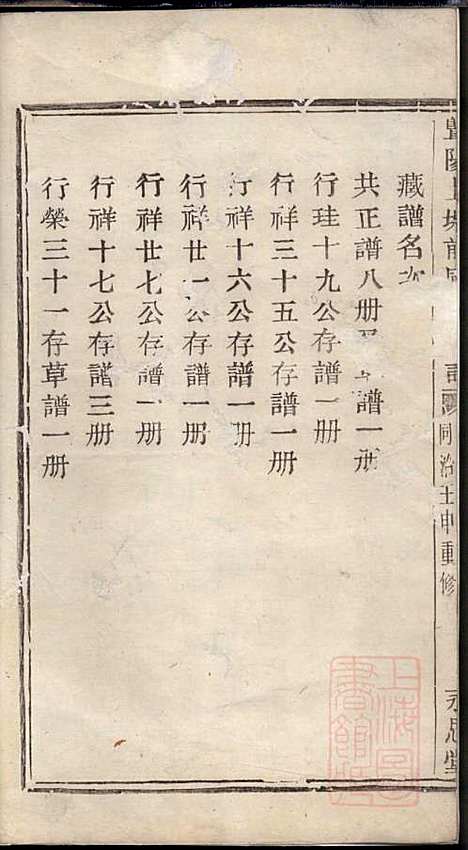 藏譜名次
共正譜八册 譜一册
行珪十九公存譜一册
行祥三十五公存譜一册
行祥十六公存譜一册
行祥廿一公存譜一册
行祥廿七公存譜一册
行祥十七公存譜三册
行榮三十一存草譜一册
同治壬申重修
永思堂
上海圖書館藏